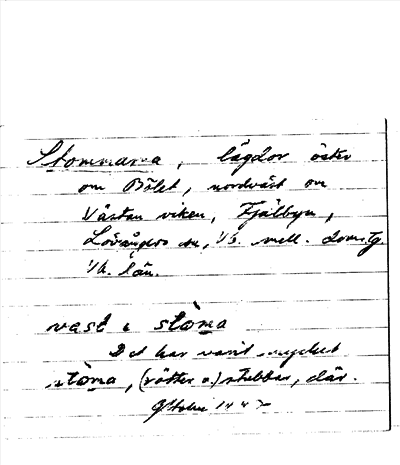 Stommarna, lägdor öster
om Bölet, nordväst om
Västanviken, Fjälbyn,
Lövångers sn, Vb. mell. doms.g
Vb. län.
vast i stòma
Det har varit mycket
stòma, (rötter o.) stubbar, där.